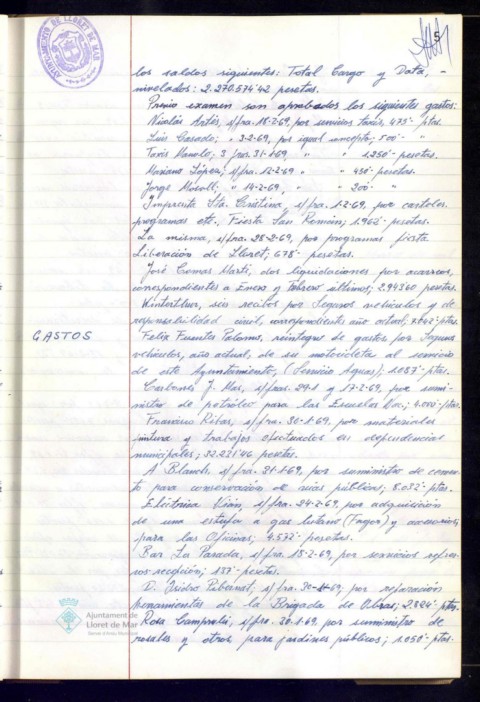 AYUNTAMIENTO DE LLORET DE MAR
5
los saldos siguientes: Total Cargo y Data, -
nivelados: 2.270.574'42 pesetas.
Previo examen son aprobados los siguientes gastos:
Nicolás Artés, s/fra. 18-2-69, por servicios taxis, 475'- ptas.
Luis Casado; " 3-2-69, por igual concepto; 500'- "
Taxis Manolo; 3 fras. 31-1-69, " " 1.250'- pesetas.
Mariano López; s/fra. 12-2-69 " " 450'- pesetas.
Jorge " 14-2-69, " " 200'- "
Imprenta Sta. Cristina s/fra. 1-2-69, por carteles
programas etc., Fiesta San Román; 1.962'- pesetas.
La misma, s/fra. 28-2-69, por programas fiesta
Liberación de Lloret; 678'- pesetas.
José Comas Martí, dos liquidaciones por acarreos,
correspondientes a Enero y febrero últimos; 2.943'60 pesetas.
Winterthur, sin recibos por Seguros vehículos y de
responsabilidad civil, correspondientes año actual, ptas.
GASTOS
Felix Fuentes Palomo, reintegro de gastos por Seguro
vehículos, año actual, de su motocicleta al servicio
de este Ayuntamiento, (Servicio Aguas); 1.087'- ptas.
Carbones J. Mas, s/fras. 29-1 y 17-2-69, por sumi-
nistro de petróleo para las Escuelas Nac.; 4.000'- ptas.
Francisco Ribas, s/fra. 30-1-69, por materiales
pintura y trabajos efectuados en dependencias
municipales; 32.221'46 pesetas.
A. Blanch, s/fra. 31-1-69, por suministro de cemen-
to para conservación de vias públicas; 8.032'- ptas.
Eléctrica s/fra. 24-2-69, por adquisición
de una estufa a gas butano (Fagor) y accesorios,
para las Oficinas; 4.577'- pesetas.
Bar La Parada, s/ fra. 18-2-69, por servicios refres-
cos recepción; 187'- pesetas.
D. Isidro Pubernat, s/fra. 30-1-69, por reparación
herramientas de la Brigada de Obras; 2.824'- ptas.
Rosa Campruli, s/fra. 30-1-69, por suministro de
rosales y otros para jardines públicos; 1.050'- ptas.
Ajuntament de
Lloret de Mar
Servei d'Arxiu Municipal